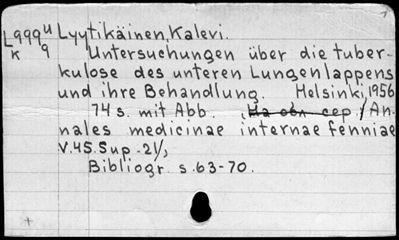 L999u Lyytikäinen, Kalevi.
K 9 Untersuchungen über die tuber-
kulose des unteren Lungenlappens
und ihre Behandlung. Helsinki, 1956
74 s. mit Abb. На обл. сер. /An-
nales medicinae internae fenniae
V.45. Sup. 21/,
Bibliogr. s. 63-70.